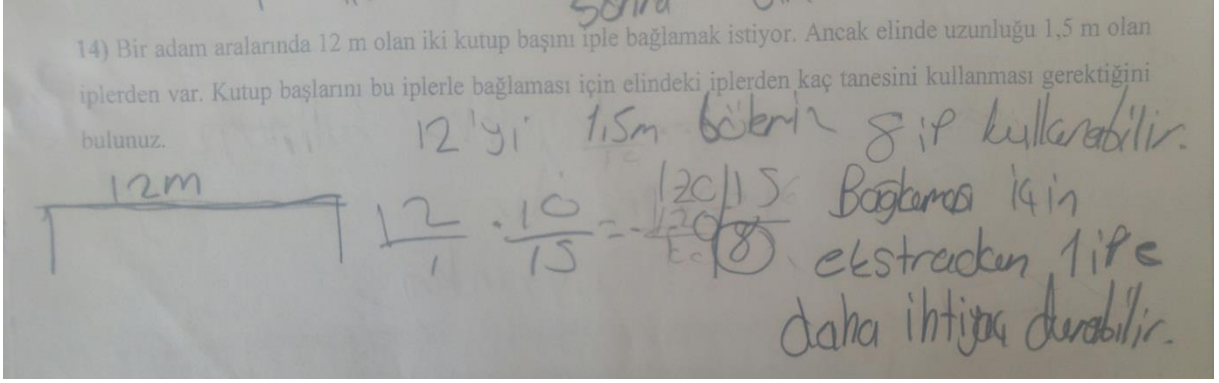 sonra
14) Bir adam aralarında 12 m olan iki kutup başını iple bağlamak istiyor. Ancak elinde uzunluğu 1,5 m olan
iplerden var. Kutup başlarını bu iplerle bağlaması için elindeki iplerden kaç tanesini kullanması gerektiğini
bulunuz.
12'yi 1,5m böleriz 8 ip kullanabilir.
12m
12/1 . 10/15 = 120 | 15
-120 8
Bağlaması için
ekstradan 1 ipe
daha ihtiyaç duyabilir.